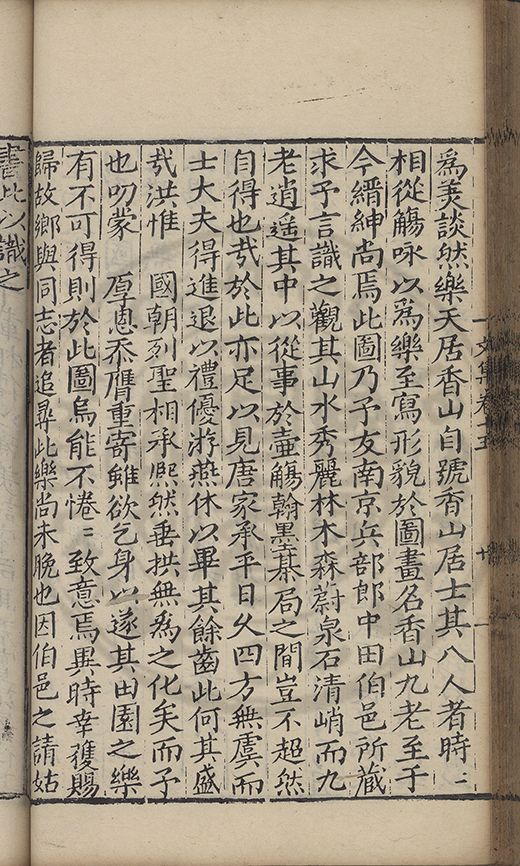 為羙談然樂天居香山自號香山居士其八人者時〻
相從觴咏以為樂至寫形貌於圖畫名香山九老至于
今縉紳尚焉此圖乃予友南京兵部郎中田伯邑所藏
求予言識之觀其山水秀麗林木森蔚泉石清峭而九
老逍遥其中以從事於壺觴翰墨棊局之間豈不超然
自得也㢤於此亦足以見唐家承平日久四方無虞而
士大夫得進退以禮優游燕休以畢其餘齒此何其盛
㢤洪惟　國朝列聖相承熈然垂拱無為之化矣而予
也叨蒙　厚恩忝膺重寄雖欲乞身以遂其田園之樂
有不可得則於此圖烏能不惓〻致意焉異時幸獲賜
歸故鄉與同志者追尋此樂尚未晚也因伯邑之請姑
書此以識之
文集卷十五